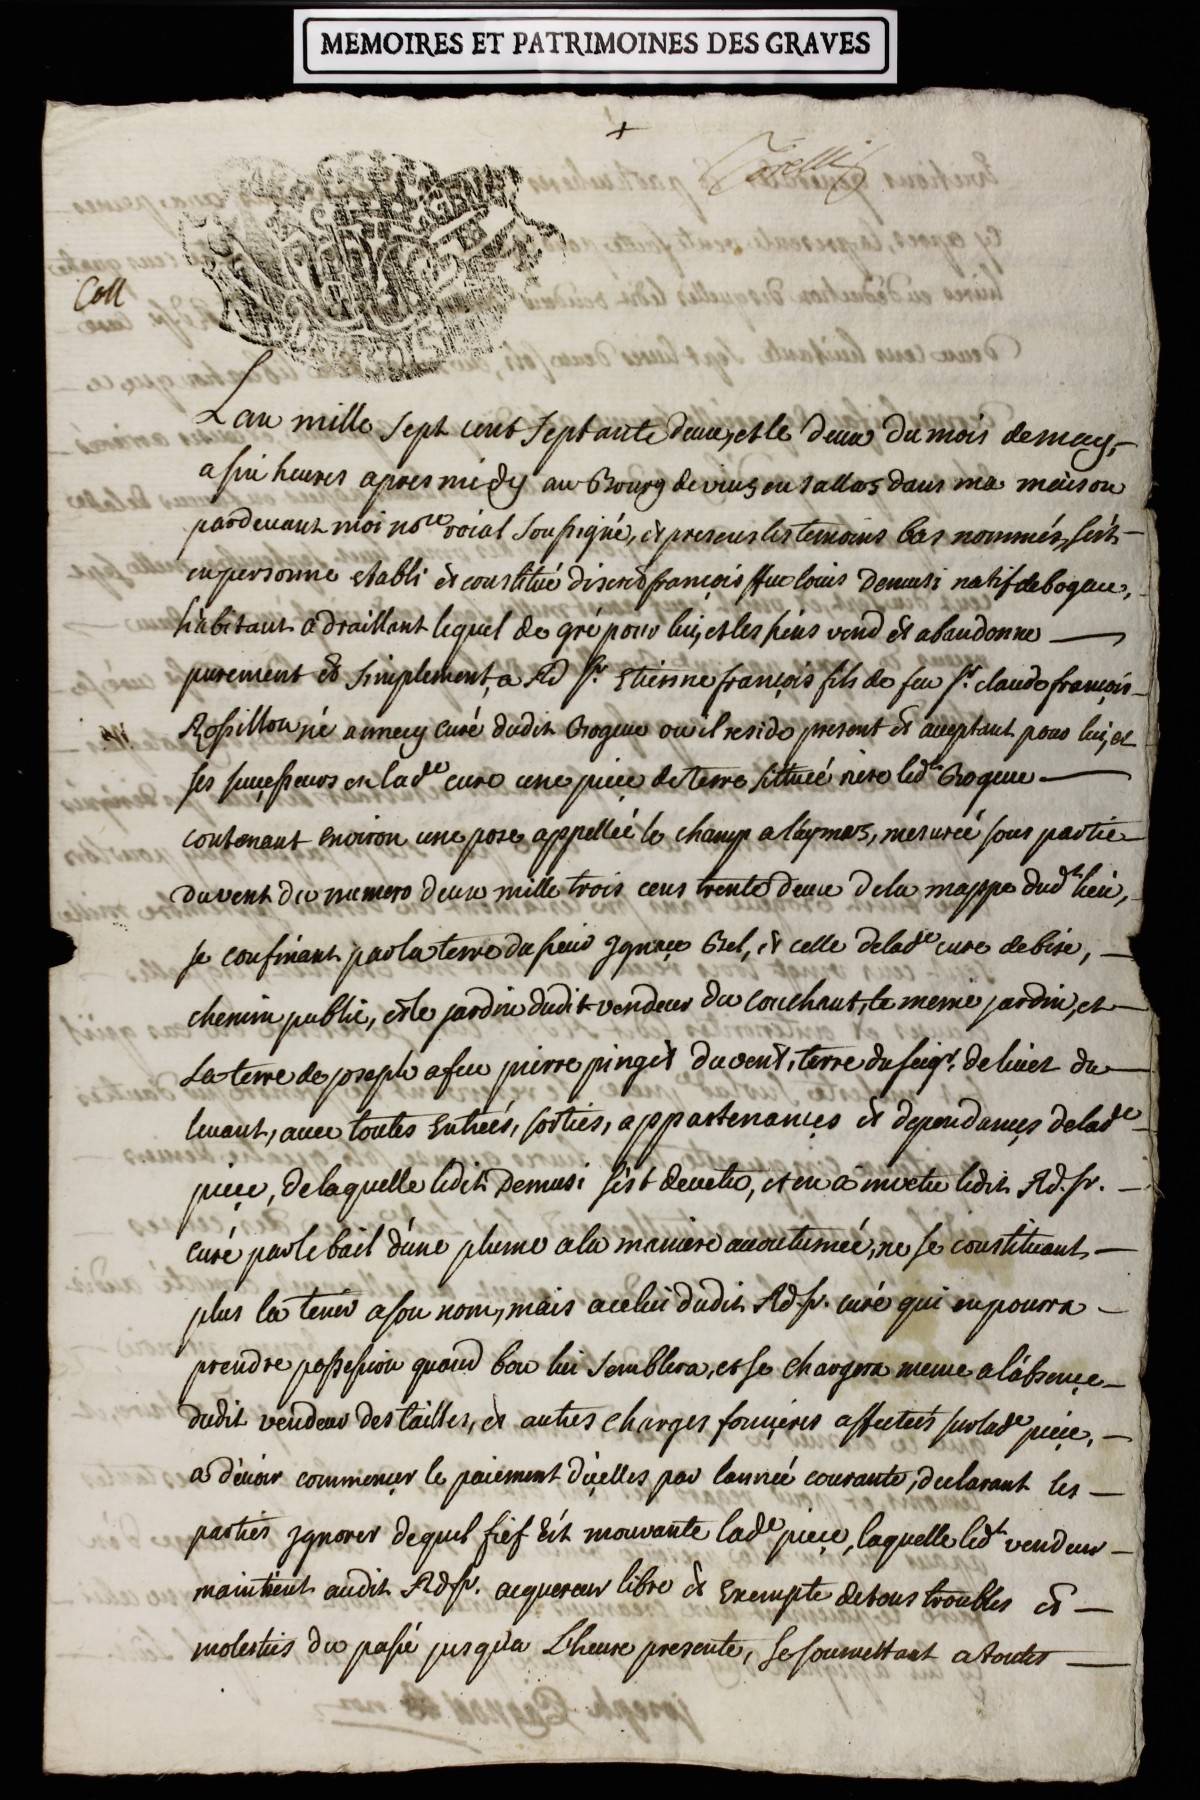 MEMOIRES ET PATRIMOINES DES GRAVES
Coll
L'an mille sept cent septante deux, et le deux du mois de may,
a six heures apres midy au Bourg de viuz en sallaz dans ma maison
pardevant moi no.re roial soussigné, et presens les temoins bas nommés, s'est
en personne etabli et constitué discret françois ffeu louis Demusi natif de bogeue,
habitant a draillant lequel de gré pour lui, et les siens vend et abandonne
purement et simplement, a Rd Sr. Etienne françois fils de feu Sr. claude françois
Rossillon né annecy curé dudit Bogeue ou il reside present et acceptant pour lui, et
ses successeurs en lad.e cure une piece de terre situeé riere led.t Bogeue
contenant environ une pose appelleé le champ a laymoz, mesureé sous partie
du vent du numero deux mille trois cens trente deux de la mappe dud.t lieu,
se confinant par la terre du sieur Ignace Gel, et celle de lad.e cure de bise,
chemin public, et le jardin dudit vendeur du couchant, le meme jardin, et
la terre de joseph a feu pierre pinget du vent, terre du seigr. de livet du
levant, avec toutes Entreés, sorties, appartenances et dependances de lad.e
piece, de laquelle ledit Demusi s'est devetu, et en a invetu ledit Rd. Sr.
curé par le bail d'une plume a la maniere accoutumeé, ne se constituant
plus la tenir a son nom, mais a celui dudit Rd. Sr. curé qui en pourra
prendre possession quand bon lui semblera, et se chargera meme a l'absence
dudit vendeur des tailles, et autres charges foncieres affecteés sur lad.e piece,
a devoir commencer le paiement d'icelles par l'anneé courante, declarant les
parties Ignorer de quel fief est mouvante lad.e piece, laquelle led.t vendeur
maintient audit Rd Sr. acquereur libre et Exempte de tous troubles et
molesties du passé jusqu'a L'heure presente, se soumettant a toutes